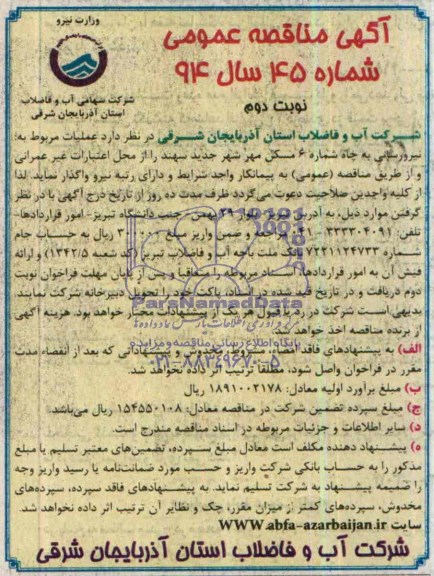 وزارت نیرو
آگهی مناقصه عمومی
شماره ۴۵ سال ۹۴
شرکت سهامی آب و فاضلاب
استان آذربایجان شرقی
نوبت دوم
شرکت آب و فاضلاب استان آذربایجان شرقی در نظر دارد عملیات مربوط به:
نیرورسانی به چاه شماره ۶ مسکن مهر شهر جدید سهند را از محل اعتبارات غیر عمرانی
و از طریق مناقصه (عمومی) به پیمانکار واجد شرایط و دارای رتبه نیرو واگذار نماید. لذا
از کلیه واجدین صلاحیت دعوت می‌گردد ظرف مدت ده روز از تاریخ درج آگهی با در نظر
گرفتن موارد ذیل، به آدرس: تبریز - بلوار ۲۹ بهمن - جنب دانشگاه تبریز- امور قراردادها-
تلفن: ۳۳۳۰۴۰۹۱-۰۴۱ مراجعه و ضمن واریز مبلغ ریال به حساب جام
شماره ۷۲۲۱۱۲۴۷۳۳ بانک ملت باجه آب و فاضلاب تبریز (کد شعبه ۱۳۴۲/۵) و ارائه
فیش آن به امور قراردادها، اسناد مربوطه را متعاقبا و حتی از پایان مهلت فراخوان نوبت
دوم دریافت و در تاریخ قید شده در اسناد، پاکت خود را تحویل دبیرخانه شرکت نمایند.
بدیهی است شرکت در رد یا قبول هر یک از پیشنهادات مختار خواهد بود. هزینه آگهی
از برنده مناقصه اخذ خواهد شد.
الف) به پیشنهادهای فاقد امضاء، مشروط، مخدوش و پیشنهاداتی که بعد از انقضاء مدت
مقرر در فراخوان واصل شود، مطلقا ترتیب اثر داده نخواهد شد.
ب) مبلغ برآورد اولیه معادل: ۱۸۹۱۰۰۲۱۷۸ ریال
ج) مبلغ سپرده تضمین شرکت در مناقصه معادل: ۱۵۴۵۵۰۱۰۸ ریال می‌باشد.
د) سایر اطلاعات و جزئیات مربوطه در اسناد مناقصه مندرج است.
ه) پیشنهاد دهنده مکلف است معادل مبلغ سپرده، تضمین‌های معتبر تسلیم یا مبلغ
مذکور را به حساب بانکی شرکت واریز و حسب مورد ضمانت‌نامه یا رسید واریز وجه
را ضمیمه پیشنهاد به شرکت تسلیم نماید. به پیشنهادهای فاقد سپرده، سپرده‌های
مخدوش، سپرده‌های کمتر از میزان مقرر، چک و نظایر آن ترتیب اثر داده نخواهد شد.
سایت WWW.abfa-azarbaijan.ir
شرکت آب و فاضلاب استان آذربایجان شرقی
ParsNamadData
پایگاه اطلاع رسانی مناقصه و مزایده
۰۲۱-۸۸۳۴۹۶۷۰-۵